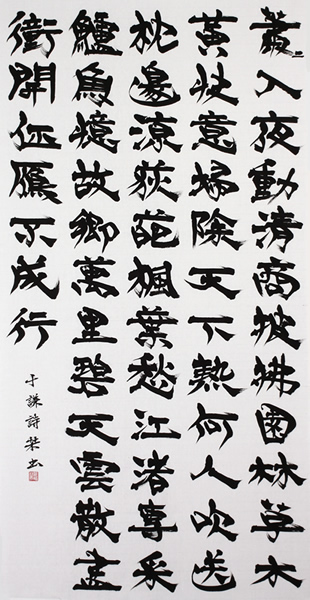 蕭々入夜動清商披拂園林草木
黃壯意掃除天下熱何人吹送
枕邊涼荻葩楓葉愁江渚專采
鱸魚憶故鄉萬里碧天雲散盡
衝開征鴈不成行
于謙詩